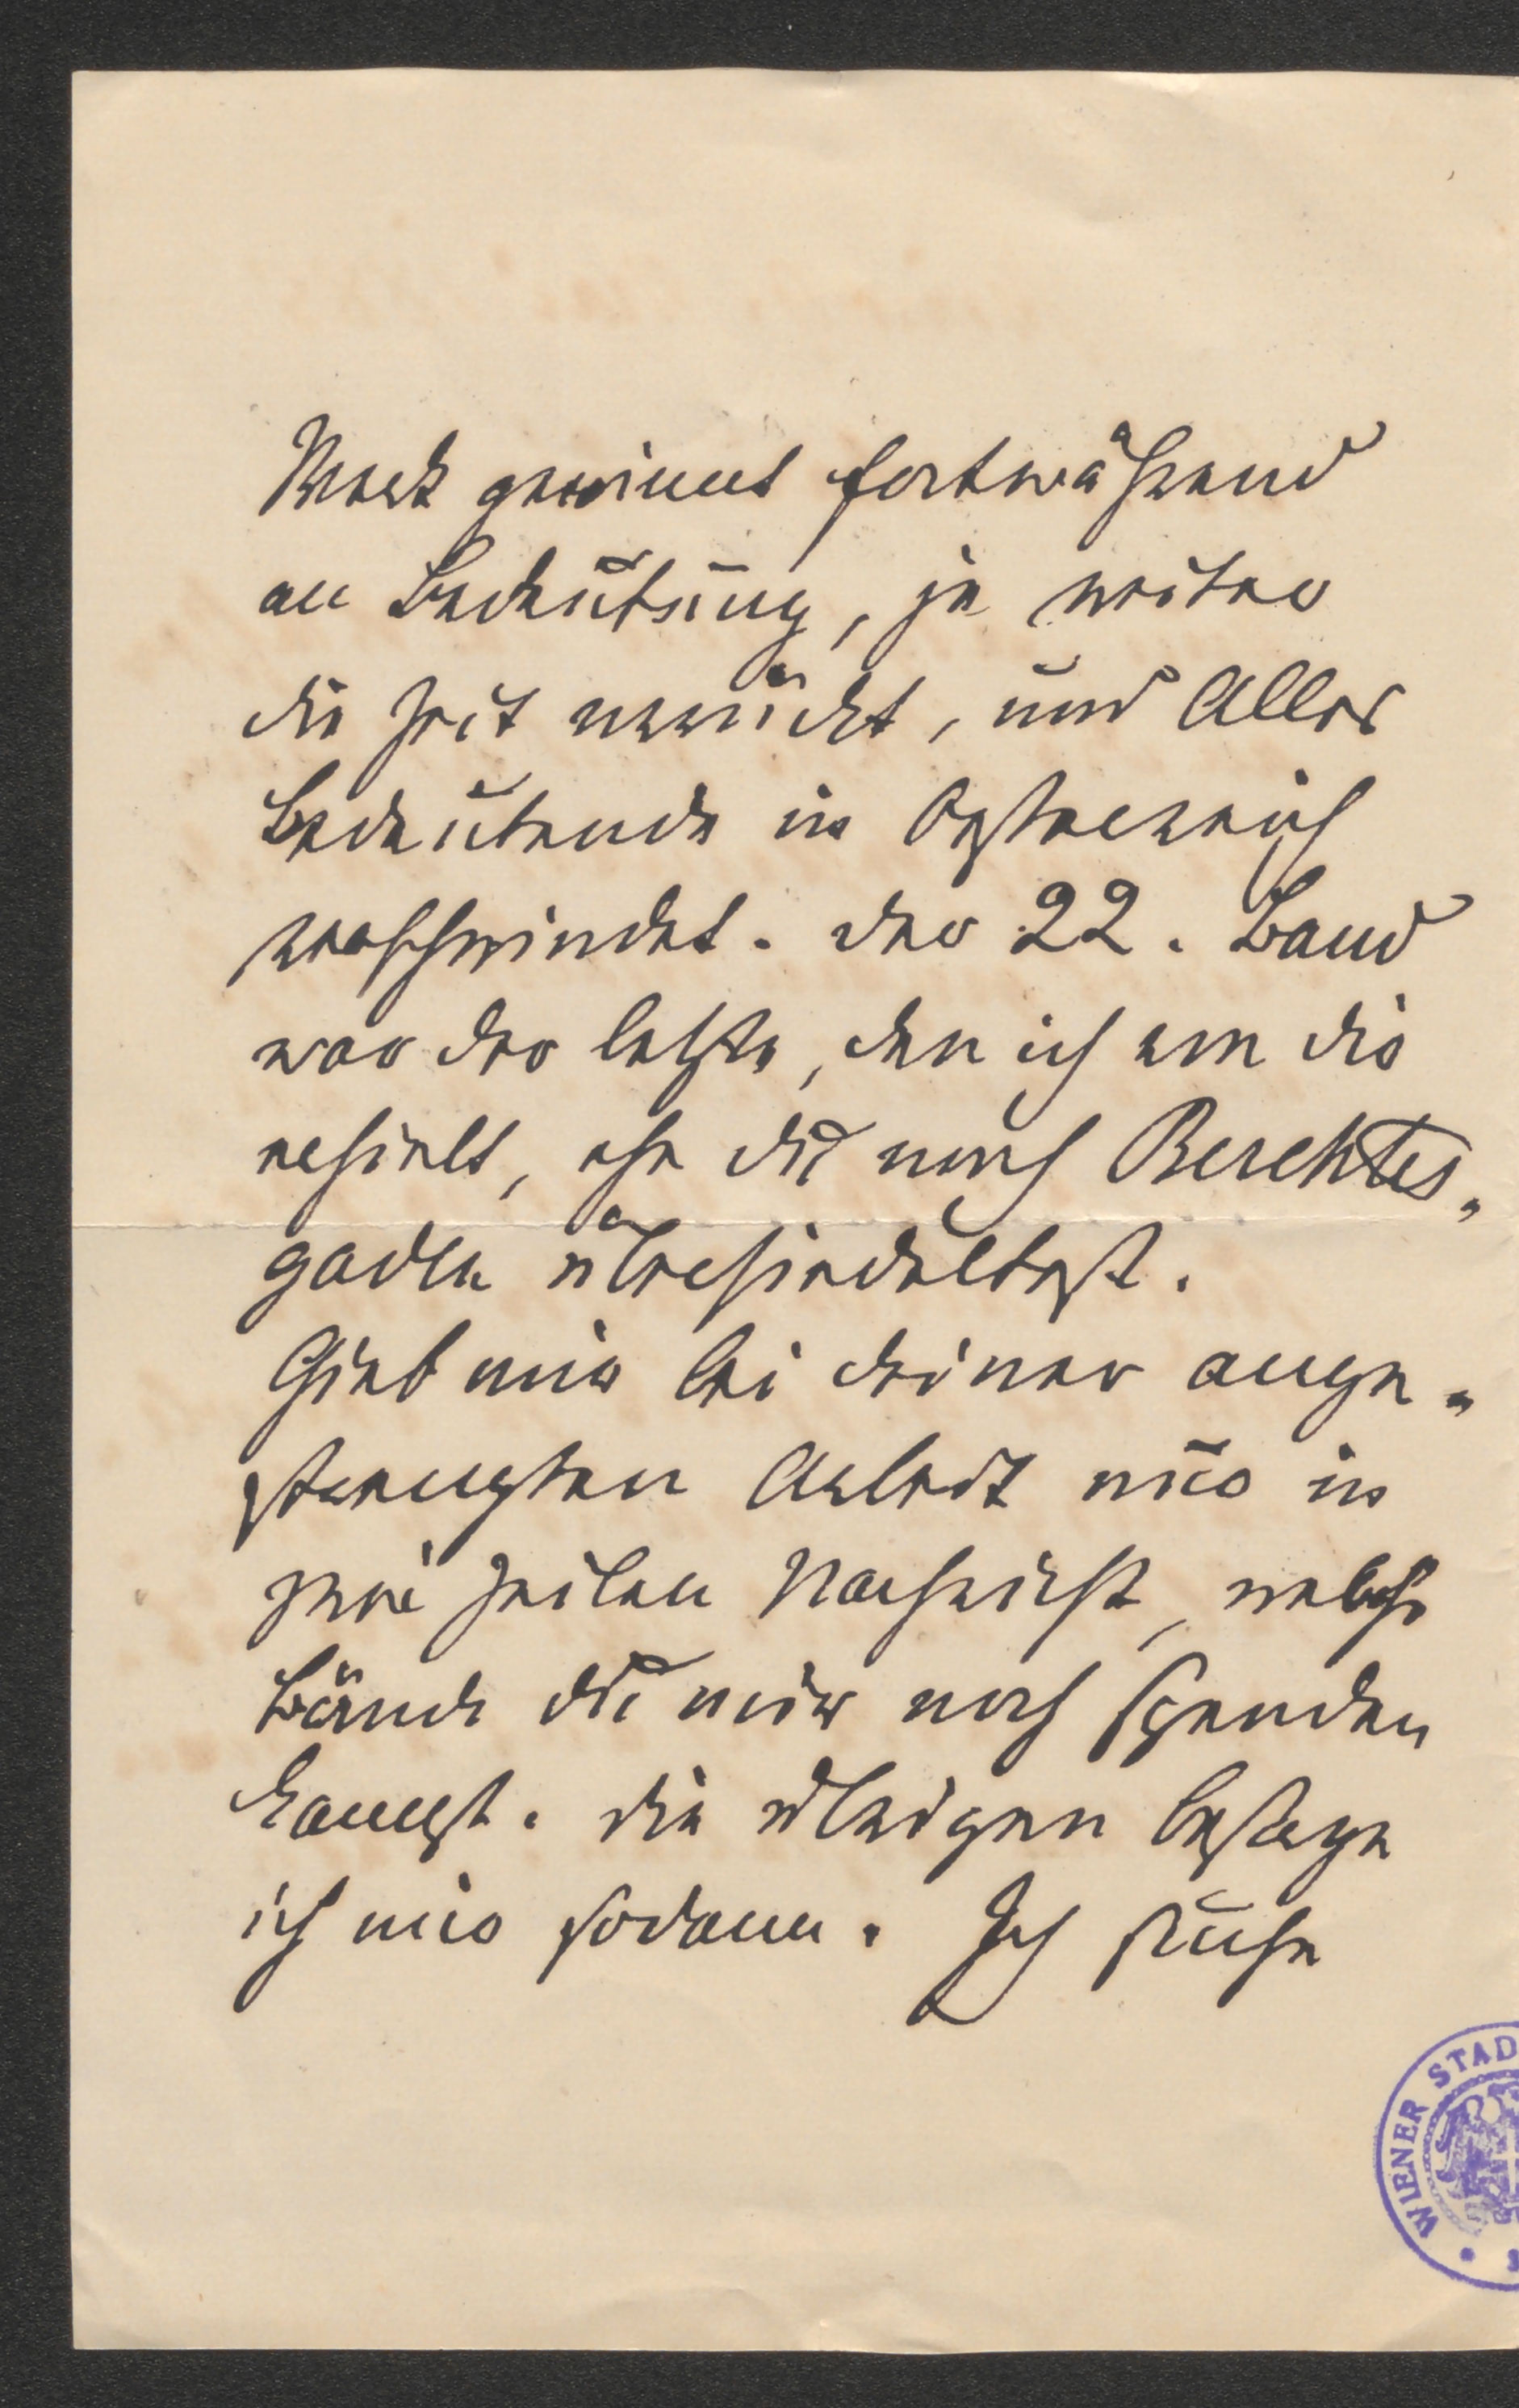 Werk gewinnt fortwährend
an Bedeutung, je weiter
die Zeit vorrückt, und Alles
Bedeutende in Oesterreich
verschwindet. Der 22. Band
war der letzte, den ich von dir
erhielt, ehe du nach Berchtes-
gaden übersiedeltest.
Gieb mir bei deiner ange-
strengten Arbeit nur in
zwei Zeilen Nachricht, welche
Bände du mir noch spenden
kannst. Die übrigen besorge
ich mir sodann. Ich suche
WIENER STAD